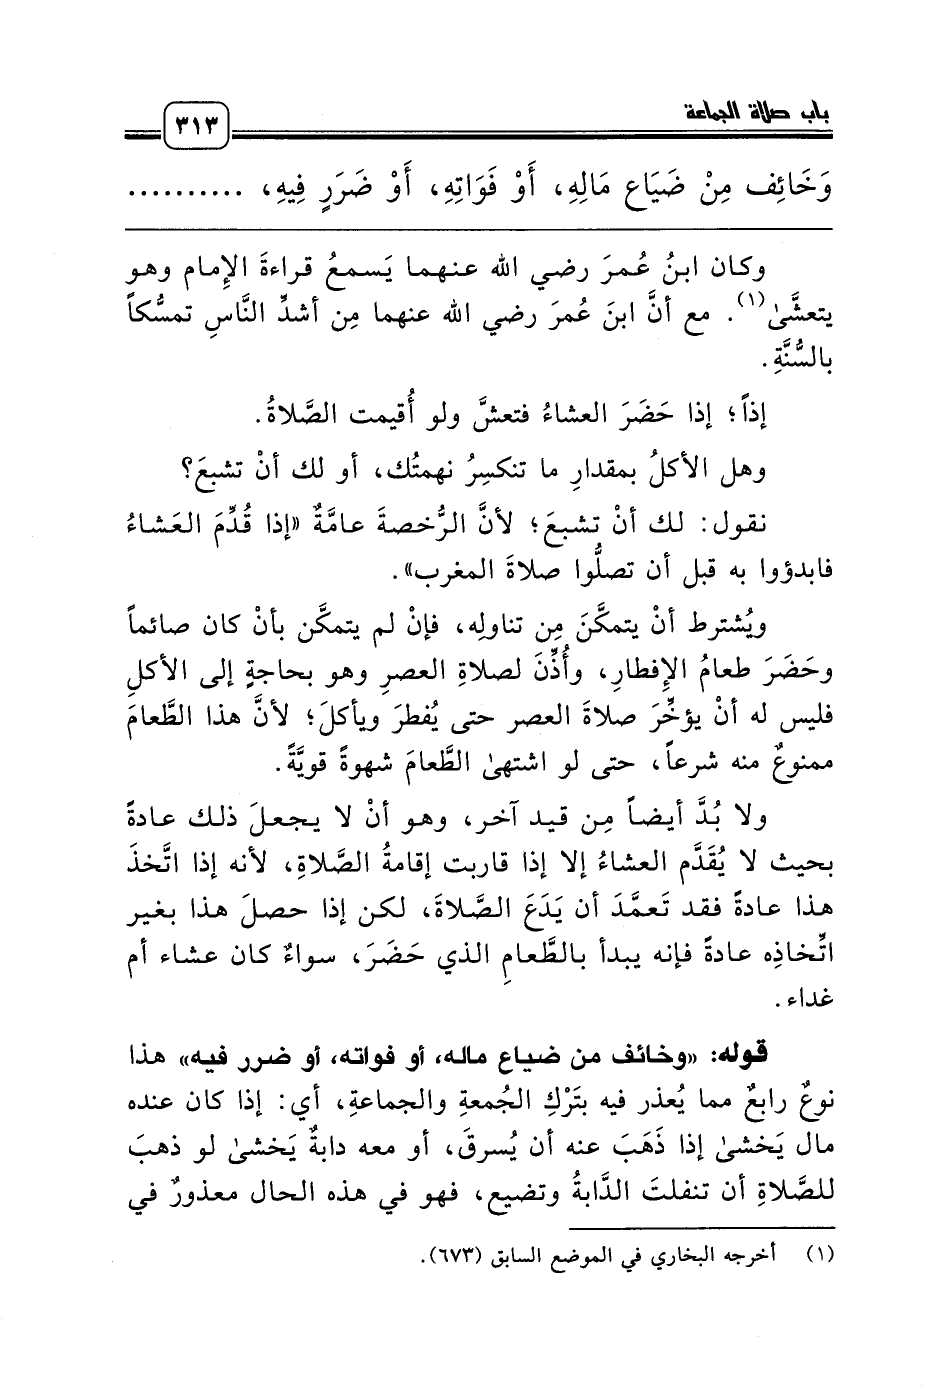 باب صلاة الجماعة
٣١٣
وَخَائِفٍ مِنْ ضَيَاعِ مَالِهِ، أَوْ فَوَاتِهِ، أَوْ ضَرَرٍ فِيهِ، ..........
وكان ابنُ عُمرَ رضي الله عنهما يَسمعُ قراءةَ الإِمام وهو
يتعشَّىٰ(١). مع أنَّ ابنَ عُمرَ رضي الله عنهما مِن أشدِّ النَّاسِ تمسُّكاً
بالسُّنَّةِ.
إذاً؛ إذا حَضَرَ العشاءُ فتعشَّ ولو أُقيمت الصَّلاةُ.
وهل الأكلُ بمقدارِ ما تنكسِرُ نهمتُك، أو لك أنْ تشبعَ؟
نقول: لك أنْ تشبعَ؛ لأنَّ الرُّخصةَ عامَّةٌ «إذا قُدِّمَ العَشاءُ
فابدؤوا به قبل أن تصلُّوا صلاةَ المغرب».
ويُشترط أنْ يتمكَّنَ مِن تناولِه، فإنْ لم يتمكَّن بأنْ كان صائماً
وحَضَرَ طعامُ الإِفطارِ، وأُذِّنَ لصلاةِ العصرِ وهو بحاجةٍ إلى الأكلِ
فليس له أنْ يؤخِّرَ صلاةَ العصر حتى يُفطرَ ويأكلَ؛ لأنَّ هذا الطَّعامَ
ممنوعٌ منه شرعاً، حتى لو اشتهىٰ الطَّعامَ شهوةً قويَّةً.
ولا بُدَّ أيضاً مِن قيد آخر، وهو أنْ لا يجعلَ ذلك عادةً
بحيث لا يُقَدَّم العشاءُ إلا إذا قاربت إقامةُ الصَّلاةِ، لأنه إذا اتَّخذَ
هذا عادةً فقد تَعمَّدَ أن يَدَعَ الصَّلاةَ، لكن إذا حصلَ هذا بغير
اتِّخاذِه عادةً فإنه يبدأ بالطَّعامِ الذي حَضَرَ، سواءٌ كان عشاء أم
غداء.
قوله: «وخائف من ضياع ماله، أو فواته، أو ضرر فيه» هذا
نوعٌ رابعٌ مما يُعذر فيه بتَرْكِ الجُمعةِ والجماعةِ، أي: إذا كان عنده
مال يَخشىٰ إذا ذَهَبَ عنه أن يُسرقَ، أو معه دابةٌ يَخشىٰ لو ذهبَ
للصَّلاةِ أن تنفلتَ الدَّابةُ وتضيع، فهو في هذه الحال معذورٌ في
(١) أخرجه البخاري في الموضع السابق (٦٧٣).